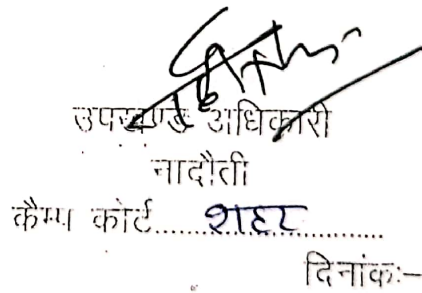 उपखण्ड अधिकारी
नादौती
कैम्प कोर्ट.....शहर.....
दिनांक:-